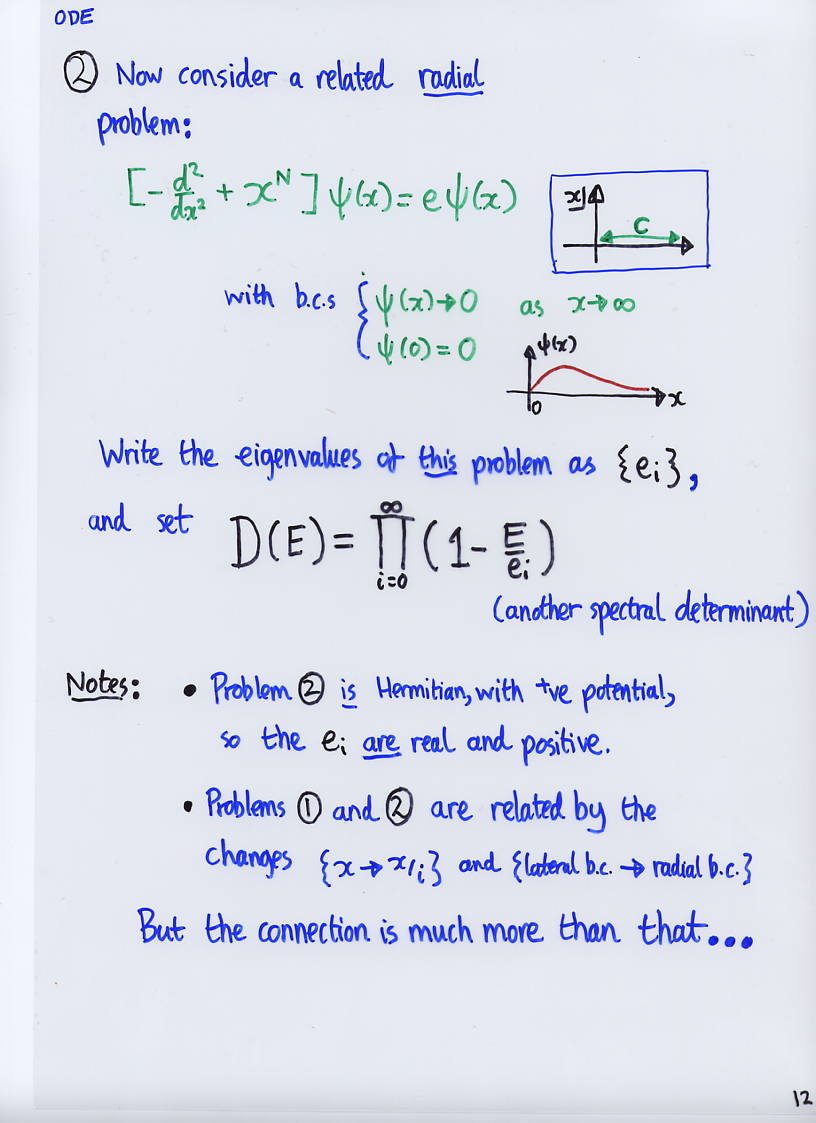 ODE
② Now consider a related radial
problem:
[-d²/dx² + xᴺ] ψ(x) = e ψ(x)
x
C
with b.c.s { ψ(x)→0 as x→∞
ψ(0)=0
ψ(x)
0 x
Write the eigenvalues of this problem as {eᵢ},
and set D(E) = ∏_{i=0}^{∞} (1 - E/eᵢ)
(another spectral determinant)
Notes: • Problem ② is Hermitian, with +ve potential,
so the eᵢ are real and positive.
• Problems ① and ② are related by the
changes {x → x/i} and {lateral b.c. → radial b.c.}
But the connection is much more than that...
12